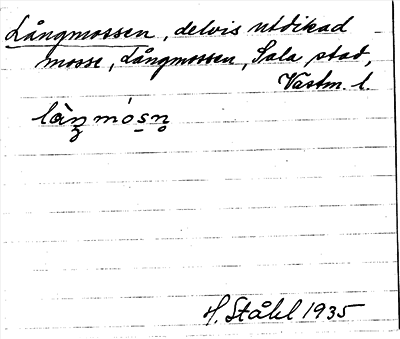 Långmossen, delvis utdikad
mosse, Långmossen, Sala stad,
Västm. l.
H. Ståhl 1935